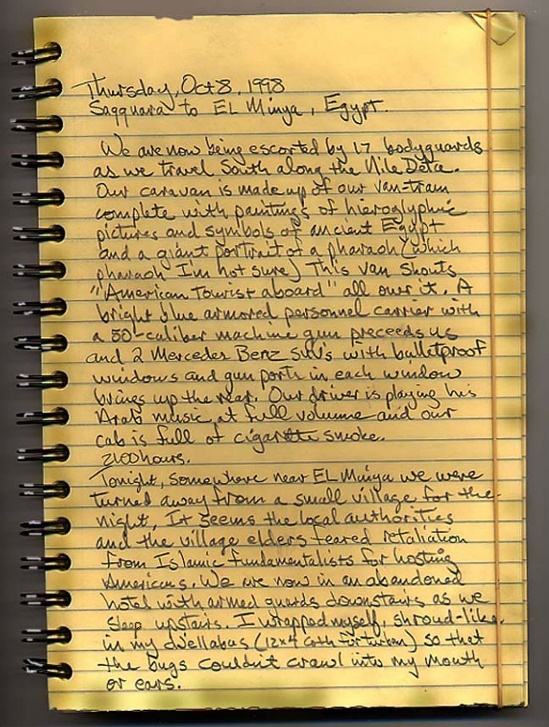 Thursday, Oct 8, 1998
Saqquara to EL Minya, Egypt.
We are now being escorted by 17 bodyguards
as we travel South along the Nile Delta.
Our caravan is made up of our van-tram
complete with paintings of hieroglyphic
pictures and symbols of ancient Egypt
and a giant portrait of a pharaoh (which
pharaoh I'm not sure) This van shouts
"American Tourist aboard" all over it. A
bright blue armored personnel carrier with
a 50-caliber machine gun preceeds us
and 2 Mercedes Benz SUV's with bulletproof
windows and gun ports in each window
brings up the rear. Our driver is playing his
Arab music at full volume and our
cab is full of cigarette smoke.
2100 hours.
Tonight, somewhere near EL Minya we were
turned away from a small village for the
night. It seems the local authorities
and the village elders feared retaliation
from Islamic fundamentalists for hosting
Americans. We are now in an abandoned
hotel with armed guards downstairs as we
sleep upstairs. I wrapped myself, shroud-like
in my djellabas (12x4 cloth for turban) so that
the bugs couldn't crawl into my mouth
or ears.